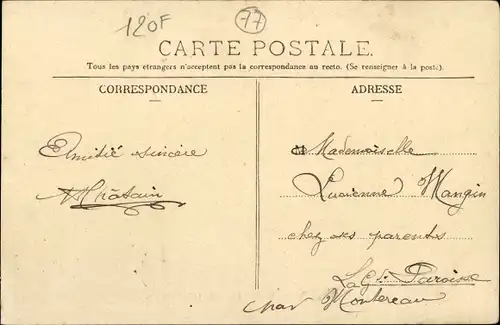 120F
77
CARTE POSTALE.
Tous les pays étrangers n'acceptent pas la correspondance au recto. (Se renseigner à la poste).
CORRESPONDANCE
ADRESSE
Amitié sincère
M Mademoiselle
Lucienne Mangin
chez ses parents
La Gde Paroisse
par Montereau